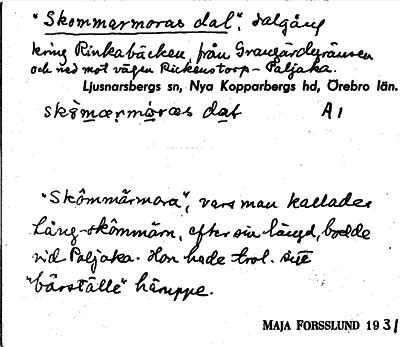 "Skommarmoras dal", dalgång
kring Rinkabäcken, från Grangärdegränsen
och ned mot vägen Rickenstorp - Paljaka.
Ljusnarsbergs sn, Nya Kopparbergs hd, Örebro län.
dal A1
"Skômmärmora", vars man kallades
Lång-skômmärn, efter sin längd, bodde
vid Paljaka. Hon hade trol. sitt
"bärställe" häruppe.
MAJA FORSSLUND 1931